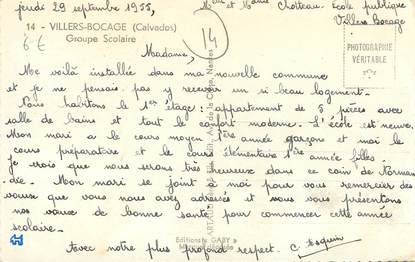 jeudi 29 septembre 1955,
Mme et Mme Chôteau. École publique
Villers Bocage
14 - VILLERS-BOCAGE (Calvados)
Groupe Scolaire
6€
14
PHOTOGRAPHIE
VÉRITABLE
Madame,
Me voilà installée dans ma nouvelle commune
et je ne pensais pas y recevoir un si beau logement.
Nous habitons le 1er étage : appartement de 5 pièces avec
salle de bains et tout le confort moderne. L'école est neuve.
Mon mari a le cours moyen 1ère année garçons et moi le
cours préparatoire et le cours élémentaire 1ère année filles
je crois que nous serons très heureux dans ce coin de Norman-
die. Mon mari se joint à moi pour vous remercier des
voeux que vous nous avez adressés et nous vous présentons
nos voeux de bonne santé pour commencer cette année
scolaire.
Avec notre plus profond respect.
Editions « GABY »